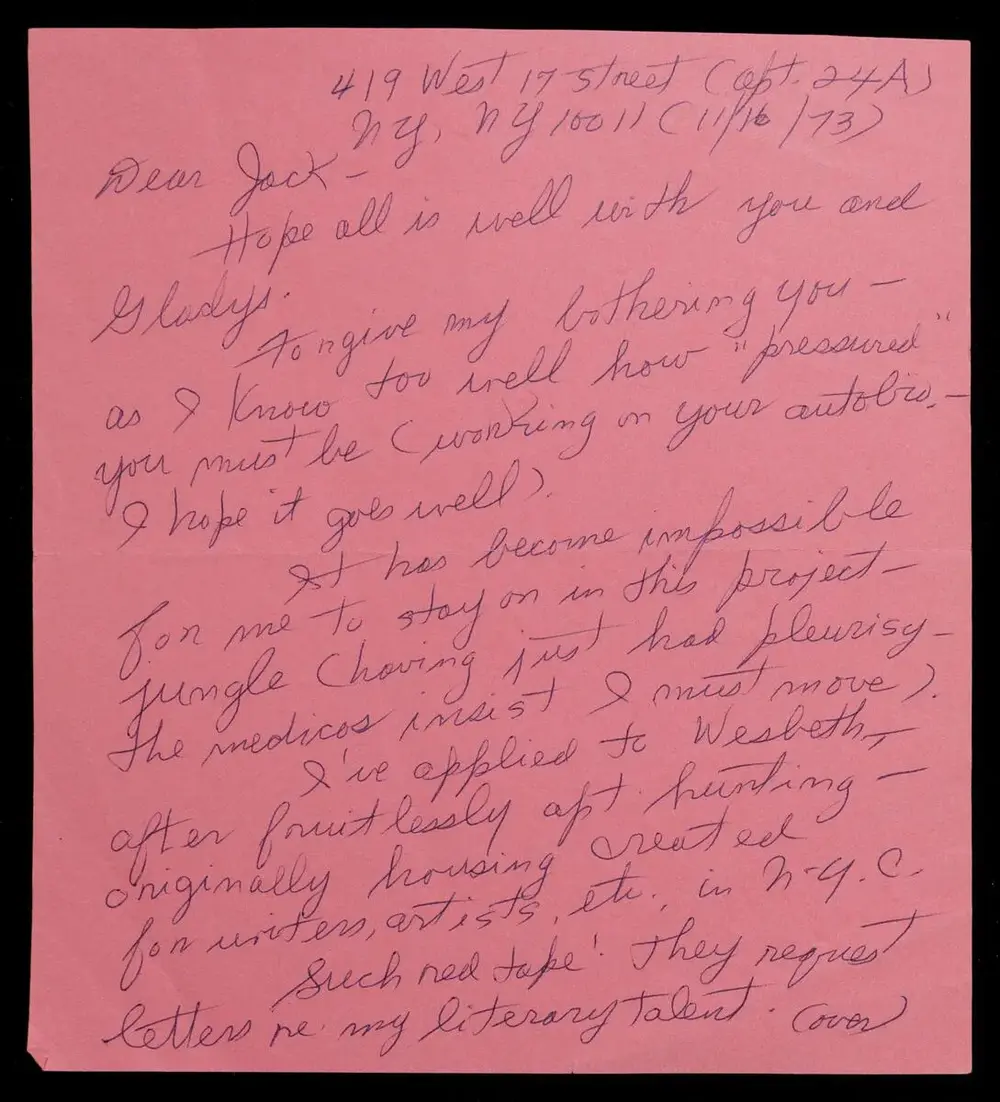 419 West 17 Street (apt. 24A)
NY, NY 10011 (11/16/73)
Dear Jack-
Hope all is well with you and
Gladys.
Forgive my bothering you -
as I know too well how "pressured"
you must be (working on your autobio. -
I hope it goes well).
It has become impossible
for me to stay on in this project-
jungle (having just had pleurisy -
the medicos insist I must move).
I've applied to Wesbeth, -
after fruitlessly apt hunting -
originally housing created
for writers, artists, etc., in N.Y.C.
Such red tape! They request
letters re: my literary talent. (over)